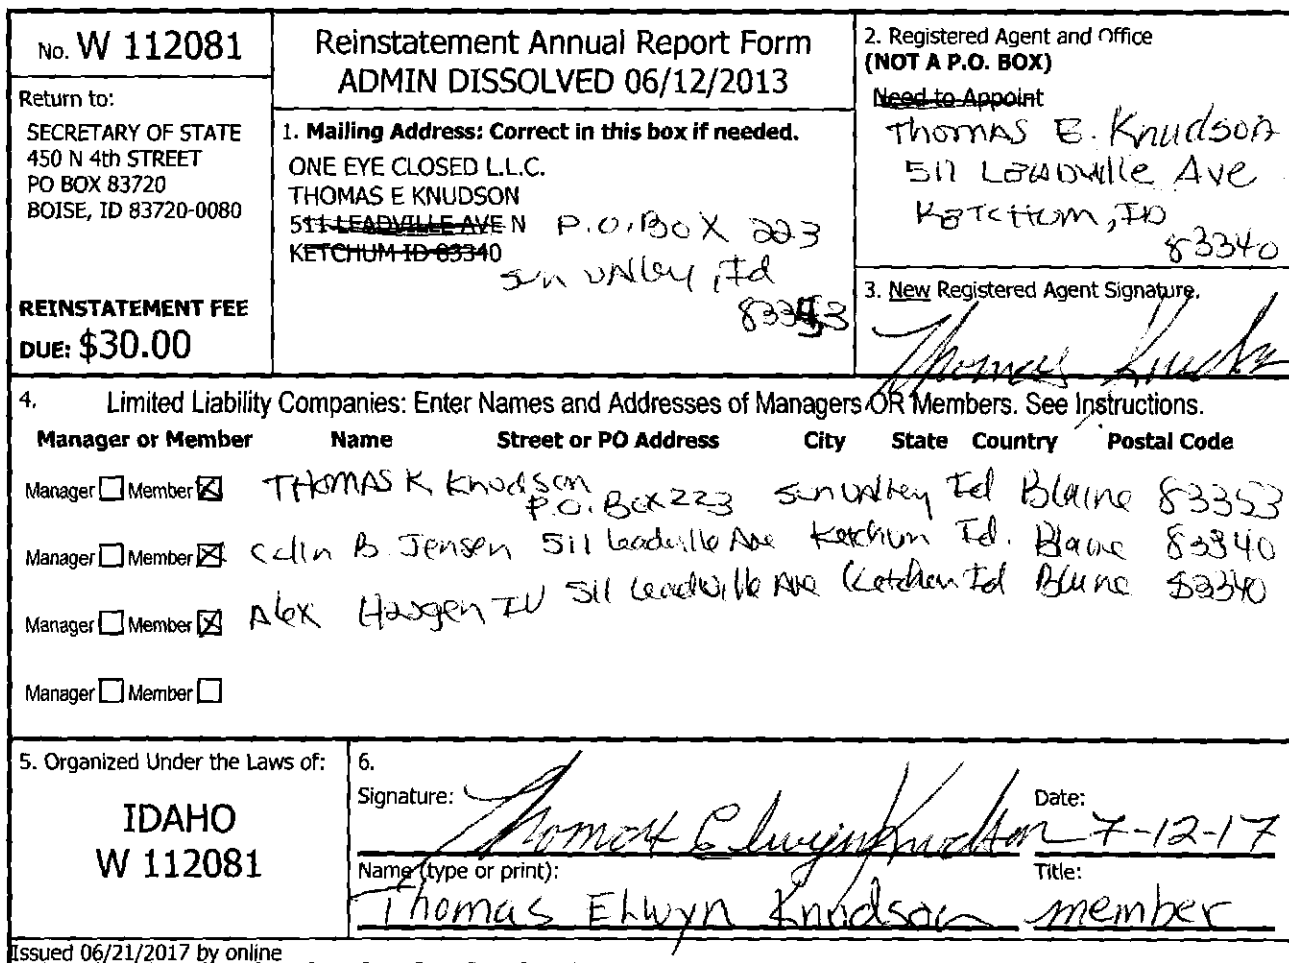 No. W 112081
Return to:
SECRETARY OF STATE
450 N 4th STREET
PO BOX 83720
BOISE, ID 83720-0080
REINSTATEMENT FEE
DUE: $30.00
Reinstatement Annual Report Form
ADMIN DISSOLVED 06/12/2013
1. Mailing Address: Correct in this box if needed.
ONE EYE CLOSED L.L.C.
THOMAS E KNUDSON
511 LEADVILLE AVE N P.O. BOX 223
KETCHUM ID 83340
Sun Valley, Id
83353
2. Registered Agent and Office
(NOT A P.O. BOX)
Need to Appoint
Thomas E. Knudson
511 Leadville Ave
Ketchum, ID
83340
3. New Registered Agent Signature.
Thomas Knudson
4. Limited Liability Companies: Enter Names and Addresses of Managers OR Members. See Instructions.
Manager or Member Name Street or PO Address City State Country Postal Code
Manager Member THOMAS K Knudson P.O. Box 223 Sun Valley Id Blaine 83353
Manager Member Colin B. Jensen 511 Leadville Ave Ketchum Id. Blaine 83340
Manager Member Alex IV 511 Leadville Ave Ketchum Id Blaine 83340
Manager Member
5. Organized Under the Laws of:
IDAHO
W 112081
6.
Signature: Thomas Elwyn Knudson Date: 7-12-17
Name (type or print): Title:
Thomas Elwyn Knudson member
Issued 06/21/2017 by online